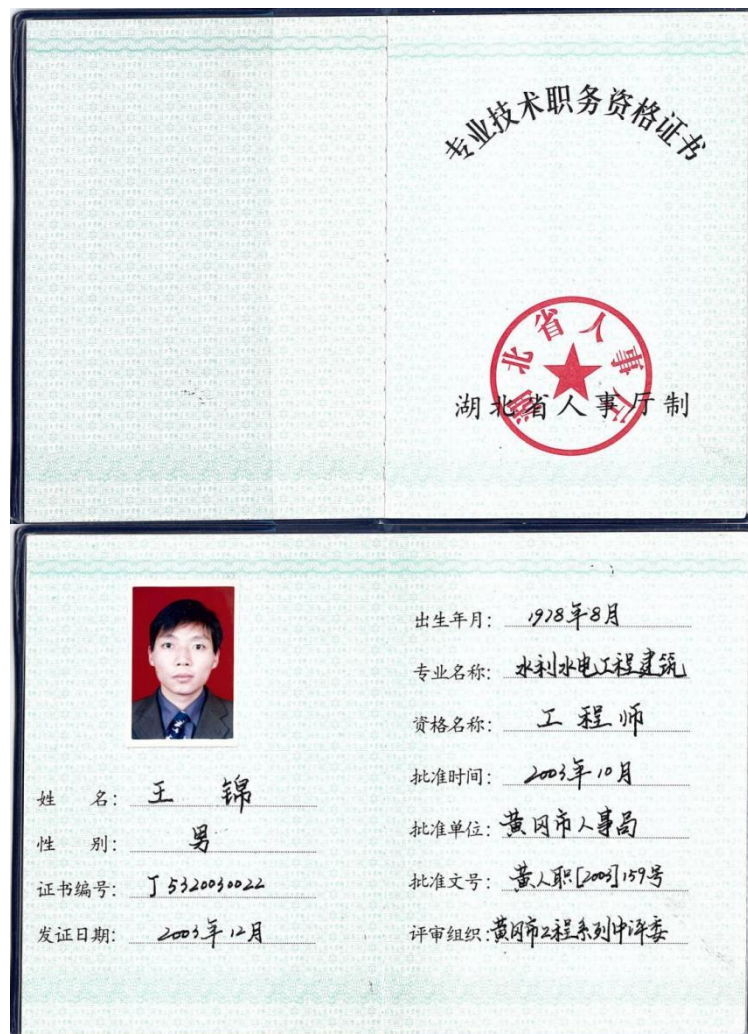 专业技术职务资格证书
湖北省人事厅
湖北省人事厅制
姓 名: 王 锦
性 别: 男
证书编号: J5320030022
发证日期: 2003年12月
出生年月: 1978年8月
专业名称: 水利水电工程建筑
资格名称: 工程师
批准时间: 2003年10月
批准单位: 黄冈市人事局
批准文号: 黄人职[2003]159号
评审组织: 黄冈市工程系列中评委